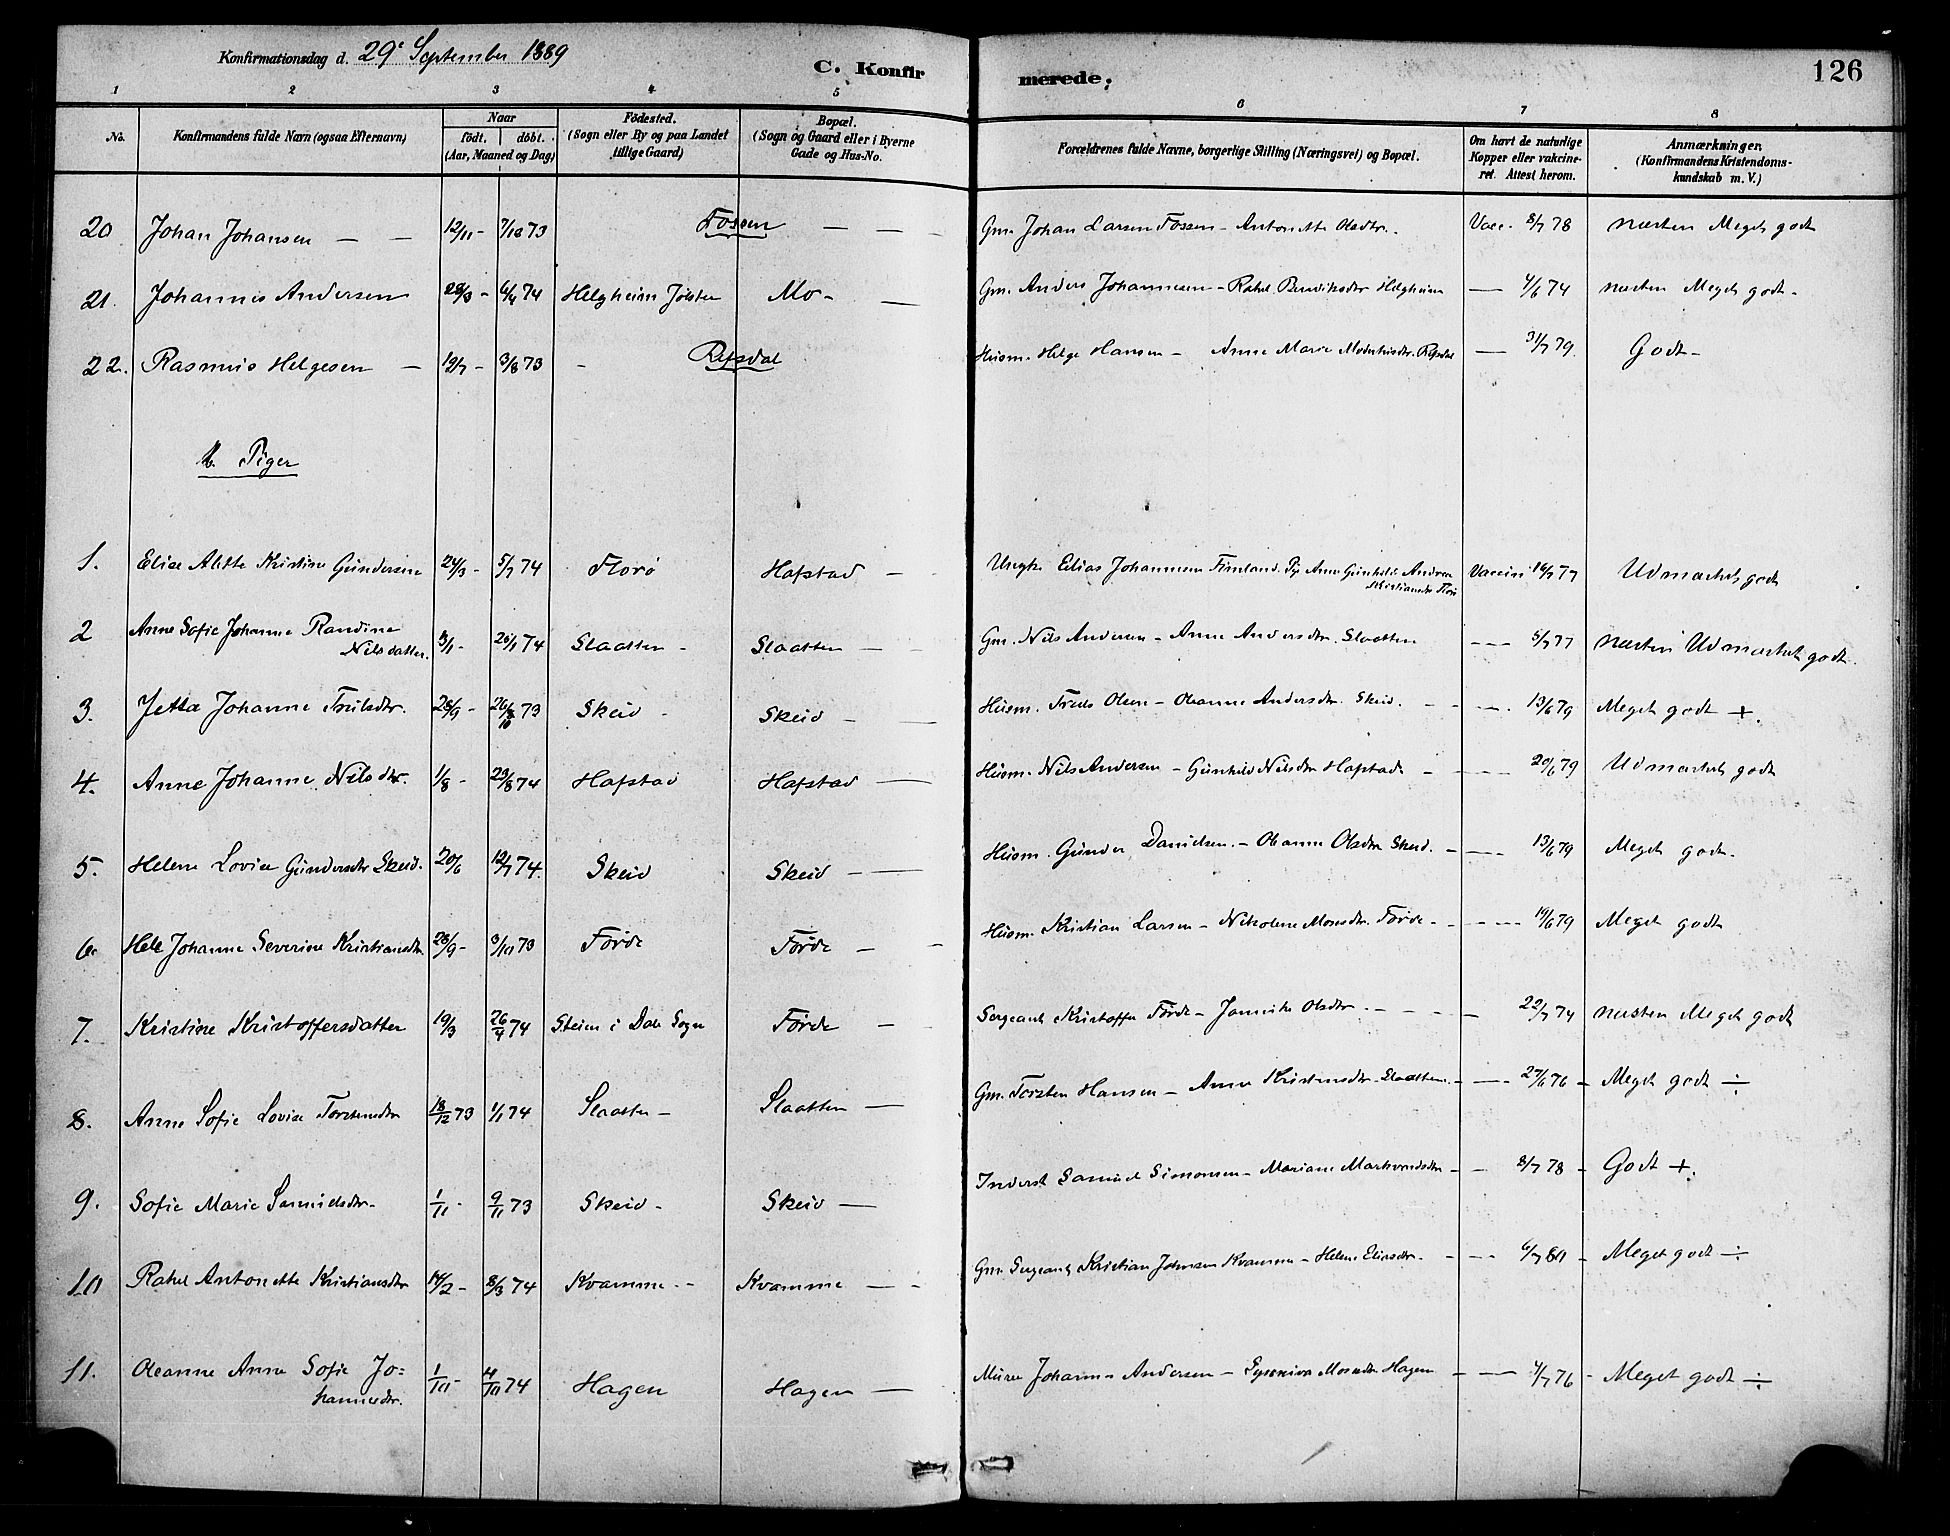 Konfirmationsdag d. 29de September 1889
C. Konfirmerede.
126
1 2 3 4 5 6 7 8
No. Konfirmandens fulde Navn (ogsaa Efternavn) Naar födt. döbt. (Aar, Maaned og Dag) Födested. (Sogn eller By og paa Landet tillige Gaard) Bopæl. (Sogn og Gaard eller i Byerne Gade og Hus-No. Forældrenes fulde Navne, borgerlige Stilling (Næringsvei) og Bopæl. Om havt de naturlige Kopper eller vakcineret. Attest herom. Anmærkninger. (Konfirmandens Kristendomskundskab m. V.)
20 Johan Johansen — — 12/11 - 7/12 73 Fossen — — Gm. Johan Larsen Fossen - Antonette Olsdtr. Vacc. 8/7 78 næsten Meget godt
21. Johannes Andersen 28/3 - 6/4 74 Helgheim Jölster Mo - — Gm. Anders Johannesen - Rahel Bendiksdtr Helgheim — 4/6 74 næsten Meget godt -
22. Rasmus Helgesen — 12/7 - 3/8 73 - Refsdal Husm. Helge Hansen - Anne Marie Refsdal — 31/7 79. Godt -
b. Piger
1. Elise Alette Kristine Gundersen 24/3 - 5/7 74 Florö Hafstad — Ungk. Elias Johannesen Fimland. Pg. Anne Gunhild Andrea Kristiansdtr Florö Vaccin 16/7 77 Udmærket godt
2 Anne Sofie Johanne Randine Nilsdatter. 3/1 - 25/1 74 Slaatten - Slaatten — Gm. Nils Andersen - Anne Andersdtr. Slaatten — 5/7 77 næsten Udmærket godt.
3. Jetta Johanne Trulsdtr. 28/9 - 26/10 73 Skeid - Skeid — Husm. Truls Olsen - Oleanne Andersdtr. Skeid. — 13/6 79 Meget godt +.
4. Anne Johanne Nilsdtr. 1/8 - 23/8 74 Hafstad Hafstad — Husm. Nils Andersen - Gunhild Nilsdtr Hafstad - — 20/6 79 Udmærket godt
5. Helene Lovise Gundersdtr Skeid. 20/6 12/7 74. Skeid Skeid — Husm. Gunder Danielsen. - Oleanne Olsdtr Skeid. — 13/6 79 Meget godt.
6. Hele Johanne Severine Kristiansdtr. 28/9 - 3/10 73 Förde Förde — Husm. Kristian Larsen - Nikoline Monsdtr. Förde - — 19/6 79 Meget godt
7. Kristine Kristoffersdatter 19/3 26/4 74 Steien i Dale Sogn Förde — Sergeant Kristoffer Förde - Jannike Olsdtr. — 22/7 74 næsten Meget godt
8. Anne Sofie Lovise Torstensdtr 18/12 73 1/1 74 Slaatten - Slaatten — Gm. Torsten Hansen - Anne Kristensdtr Slaatten. — 27/6 76 - Meget godt ÷
9. Sofie Marie Samuelsdtr. 1/11 - 9/11 73 Skeid - Skeid — Inderst Samuel Simonsen - Mariane Markvardsdtr — 8/7 78 - Godt +.
10 Rahel Antonette Kristiansdtr 14/2 - 8/3 74 Kvamme - Kvamme — Gm. Sergeant Kristian Johnsen Kvamme - Helene Eliasdtr. — 6/7 80 - Meget godt ÷
11. Oleanne Anne Sofie Jo=
hannesdtr. 1/10 - 4/10 74 Hagen Hagen — Murer Johannes Andersen - Synneva Monsdtr Hagen — 4/7 76 - Meget godt ÷